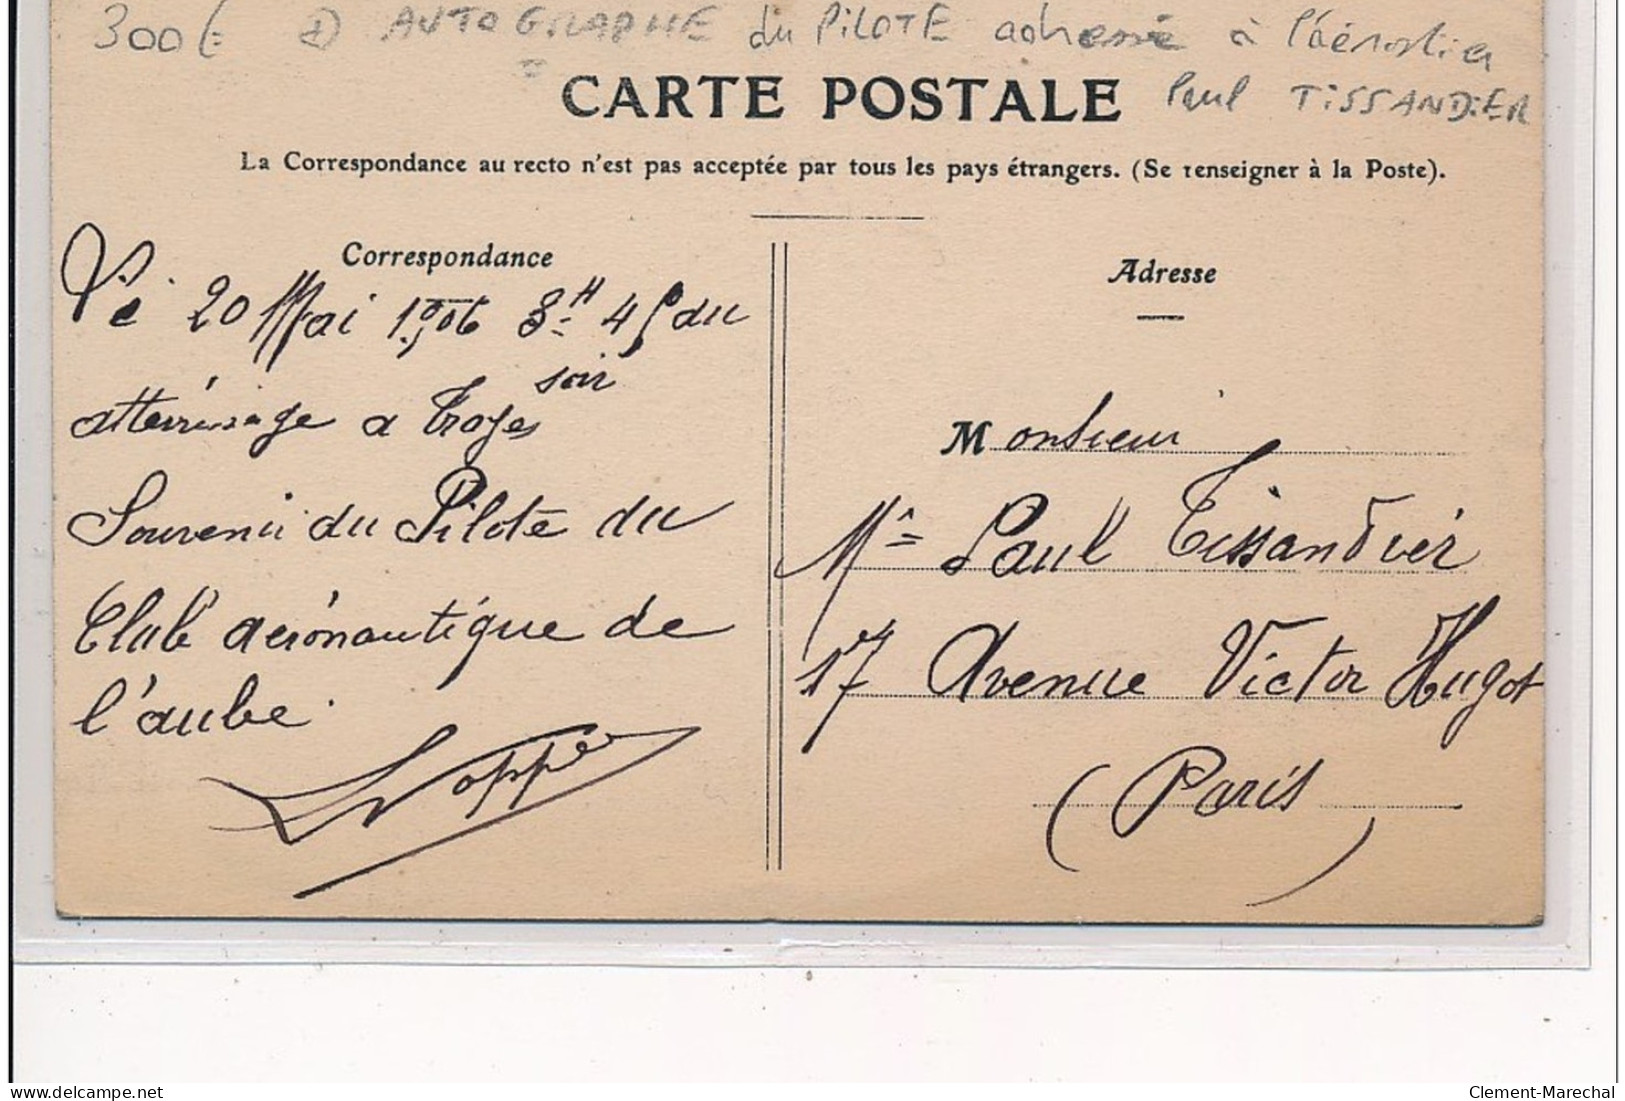 300€ 1) AUTOGRAPHE du PiLOTE adressé à l'aérostier
CARTE POSTALE Paul TiSSANDiER
La Correspondance au recto n'est pas acceptée par tous les pays étrangers. (Se renseigner à la Poste).
Correspondance
Le 20 Mai 1906 8H 45 du
soir
atterrisage a Troyes
Souvenir du Pilote du
Club aéronautique de
l'aube.
Adresse
Monsieur
Mr Paul Tissandier
17 Avenue Victor Hugot
(Paris)
Clement-Marechal